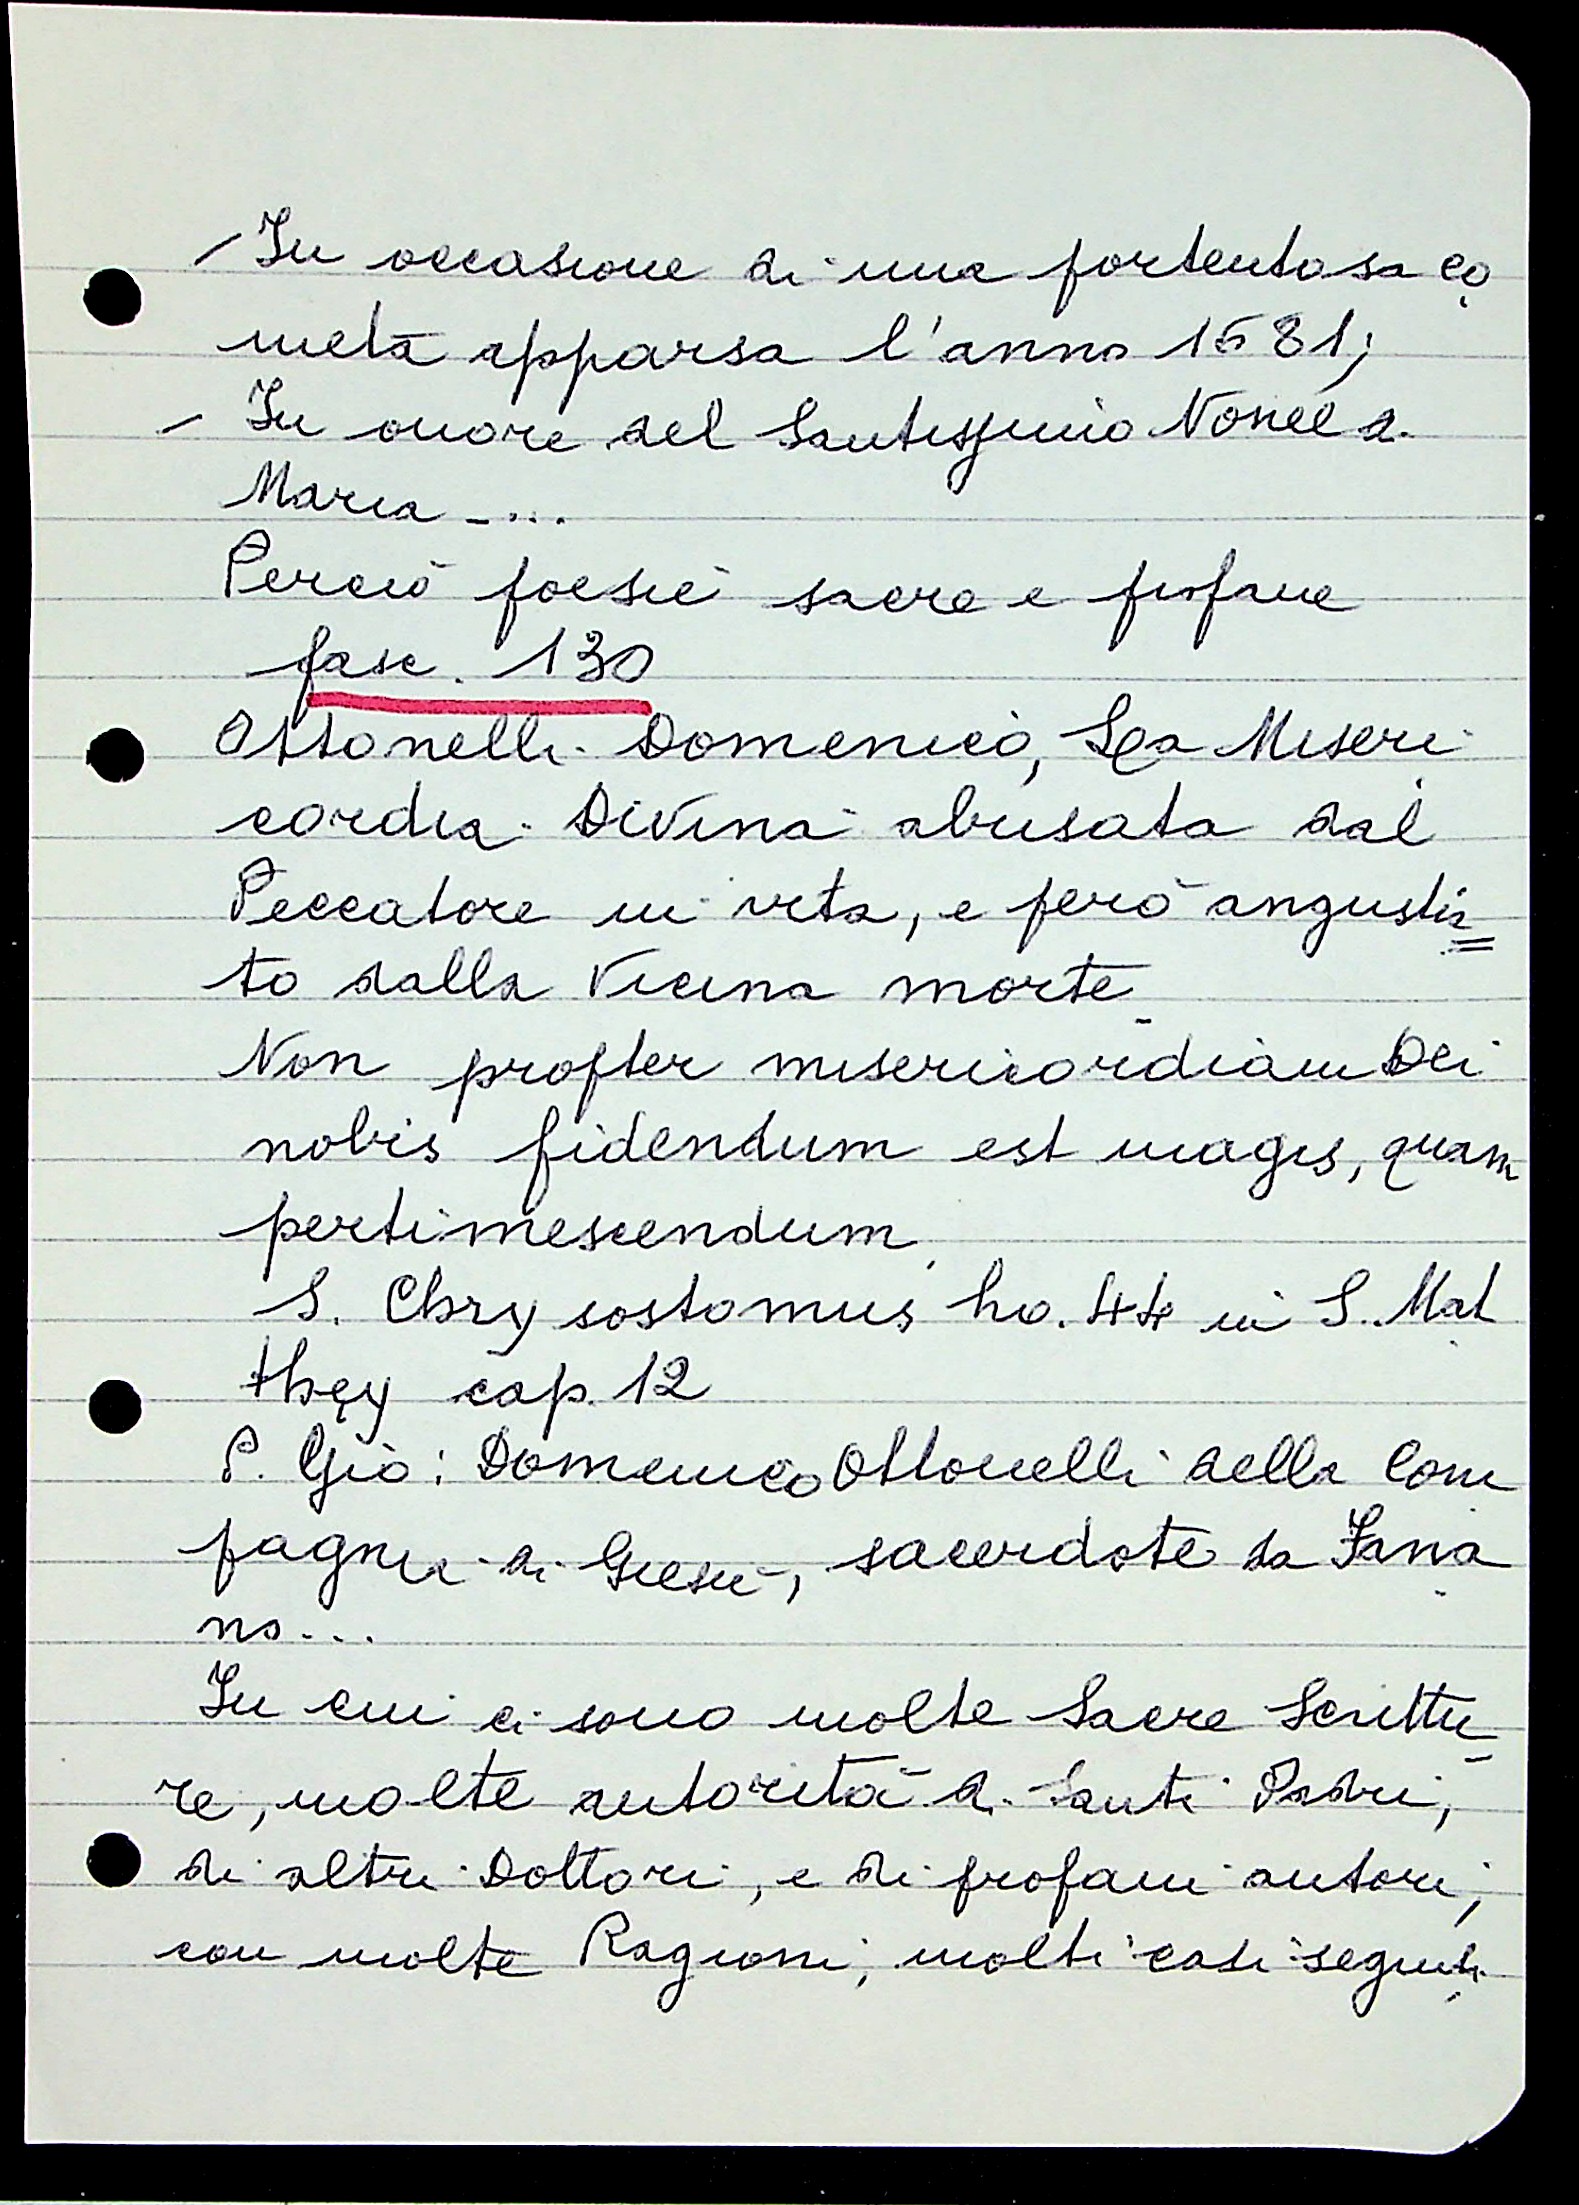 - In occasione di una portentosa co
meta apparsa l'anno 1681;
- In onore del Santissimo Nome di
Maria -...
Perciò poesie sacre e profane
fasc. 130
Ottonelli Domenico, La Miseri
cordia Divina abusata dal
Peccatore in vita, e però angustia=
to dalla vicina morte
Non propter misericordiam Dei
nobis fidendum est magis, quam
pertimescendum.
S. Chrysostomus ho. 44 in S. Mat
thęy cap. 12
P. Gio: Domenico Ottonelli della Com
pagnia di Gesù, sacerdote da Fana
no...
In cui ci sono molte Sacre Scrittu
re, molte autorità di Santi Padri,
di altri Dottori, e di profani autori,
con molte Ragioni, molti casi seguiti